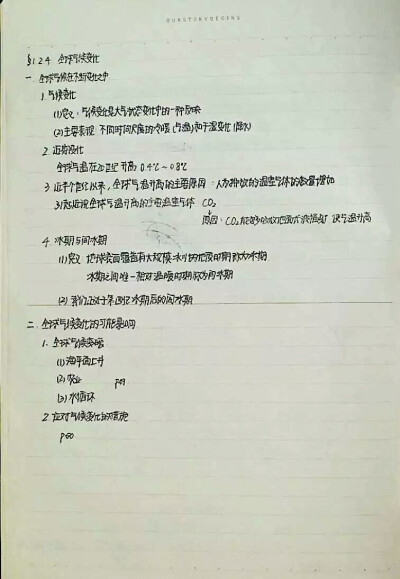 OURSTORYBEGINS
§1.2.4 全球气候变化
一. 全球气候在不断变化之中
1. 气候变化
(1) 定义: 气候变化是大气物态变化中的一种反映
(2) 主要表现: 不同时间尺度的冷暖(气温)和干湿变化(降水)
2. 近期变化
全球气温在20世纪升高0.4℃~0.8℃
3. 近半个世纪以来, 全球气温升高的主要原因: 人为排放的温室气体的数量增加
3) 导致全球气温升高的主要温室气体 CO₂
原因: CO₂能够吸收地面长波辐射 使气温升高
4. 冰期与间冰期
(1) 定义: 地球表面覆盖有大规模冰川的地质时期称为冰期
冰期之间唯一相对温暖时期称为间冰期
(2) 我们正处于第四纪冰期后的间冰期
二. 全球气候变化的可能影响
1. 全球气候变暖
(1) 海平面上升
(2) 农业 P49
(3) 水循环
2. 应对气候变化的措施
P50